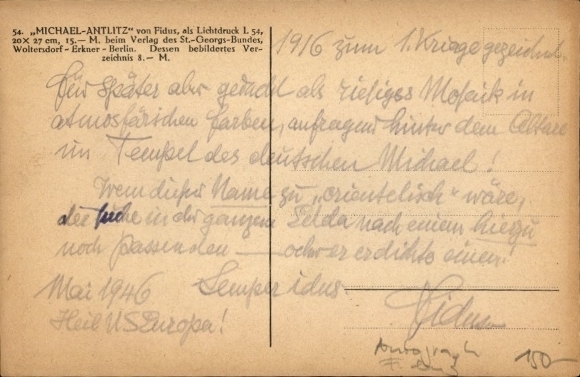 54. „MICHAEL-ANTLITZ“ von Fidus, als Lichtdruck L 54,
20×27 cm, 15.— M. beim Verlag des St.-Georgs-Bundes,
Woltersdorf-Erkner-Berlin. Dessen bebildertes Ver-
zeichnis 8.— M.
1916 zum 1. Kriege gezeichnet.
Für später aber gedacht als riesiges Mosaik in
atmosfärischen Farben, aufragend hinter dem Altare
im Tempel des deutschen Michael!
Wem dieser Name zu „orientalisch“ wäre,
der suche in der ganzen Edda nach einem hierzu
noch passenden — oder er erdichte einen!
Mai 1946 Semper idus
Heil USEuropa!
Fidus
Autograph
Fidus
150-